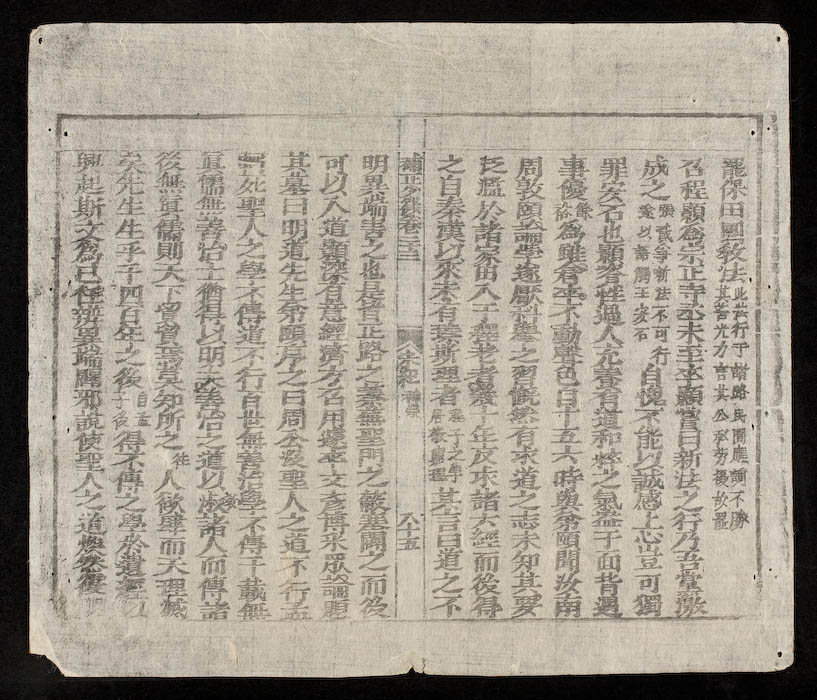 罷保田國敎法此法行于諸路民間應調不勝其害光力言其公私勞擾故罷
召程顥爲宗正寺丞未至卒顥嘗曰新法之行乃吾黨激
成之張戩爭新法不可行遂以語觸王安石自愧不能以誠感上心豈可獨
罪安石也顥資性過人充養有道和粹之氣盎于面背遇
事優爲雖倉卒不動聲色自十五六時與弟頤聞汝南
周敦頤論學遂厭科擧之習慨然有求道之志未知其要
泛濫於諸家出入于釋老者幾十年反求諸六經而後得
之自秦漢以來未有臻斯理者程子之學居敬窮理其言曰道之不
補正少微錄卷之三 宋紀 神宗 八十五
明異端害之也是皆正路之蓁蕪聖門之蔽塞闢之而後
可以入道顥深有意經濟方召用遽卒文彦博采眾論題
其墓曰明道先生弟頤序之曰周公沒聖人之道不行孟
軻死聖人之學不傳道不行百世無善治學不傳千載無
眞儒無善治士猶得以明夫善治之道以淑諸人而傳諸
後無眞儒則天下貿貿焉莫知所之人欲肆而天理滅
矣先生生乎千四百年之後自孟子後得不傳之學於遺經以
興起斯文爲己任辨異端闢邪說使聖人之道煥然復明